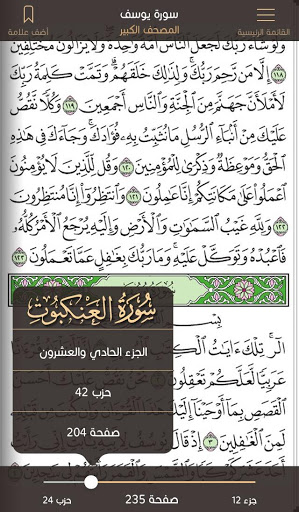 القائمة الرئيسية
سورة يوسف
المصحف الكبير
أضف علامة
وَلَوْ شَآءَ رَبُّكَ لَجَعَلَ ٱلنَّاسَ أُمَّةً وَٰحِدَةً وَلَا يَزَالُونَ مُخْتَلِفِينَ
١١٨ إِلَّا مَن رَّحِمَ رَبُّكَ وَلِذَٰلِكَ خَلَقَهُمْ وَتَمَّتْ كَلِمَةُ رَبِّكَ
لَأَمْلَأَنَّ جَهَنَّمَ مِنَ ٱلْجِنَّةِ وَٱلنَّاسِ أَجْمَعِينَ ١١٩ وَكُلًّا نَّقُصُّ
عَلَيْكَ مِنْ أَنۢبَآءِ ٱلرُّسُلِ مَا نُثَبِّتُ بِهِۦ فُؤَادَكَ وَجَآءَكَ فِى هَٰذِهِ
ٱلْحَقُّ وَمَوْعِظَةٌ وَذِكْرَىٰ لِلْمُؤْمِنِينَ ١٢٠ وَقُل لِّلَّذِينَ لَا يُؤْمِنُونَ
ٱعْمَلُوا۟ عَلَىٰ مَكَانَتِكُمْ إِنَّا عَٰمِلُونَ ١٢١ وَٱنتَظِرُوٓا۟ إِنَّا مُنتَظِرُونَ
١٢٢ وَلِلَّهِ غَيْبُ ٱلسَّمَٰوَٰتِ وَٱلْأَرْضِ وَإِلَيْهِ يُرْجَعُ ٱلْأَمْرُ كُلُّهُۥ
فَٱعْبُدْهُ وَتَوَكَّلْ عَلَيْهِ وَمَا رَبُّكَ بِغَٰفِلٍ عَمَّا تَعْمَلُونَ ١٢٣
سُورَةُ العَنكَبُوتِ
الجزء الحادي والعشرون
حزب 42
صفحة 204
بِسْمِ
الٓر تِلْكَ ءَايَٰتُ ٱلْكِتَٰبِ
عَرَبِيًّا لَّعَلَّكُمْ تَعْقِلُونَ
ٱلْقَصَصِ بِمَآ أَوْحَيْنَآ إِلَيْكَ
لَمِنَ ٱلْغَٰفِلِينَ ٣ إِذْ قَالَ
جزء 12
صفحة 235
حزب 24